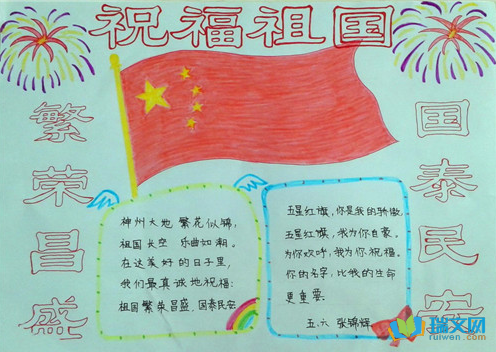 祝福祖国
繁荣昌盛
国泰民安
神州大地 繁花似锦,
祖国长空 乐曲如潮。
在这美好的日子里,
我们最真诚地祝福:
祖国繁荣昌盛,国泰民安
五星红旗,你是我的骄傲,
五星红旗,我为你自豪。
为你欢呼,我为你祝福。
你的名字,比我的生命
更重要
五.六 张锦辉
瑞文网
ruiwen.com